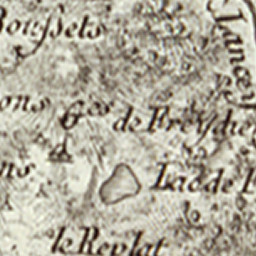 Bouſsets
ons
G.es
de Freydie
ns
Lac de
le Replat